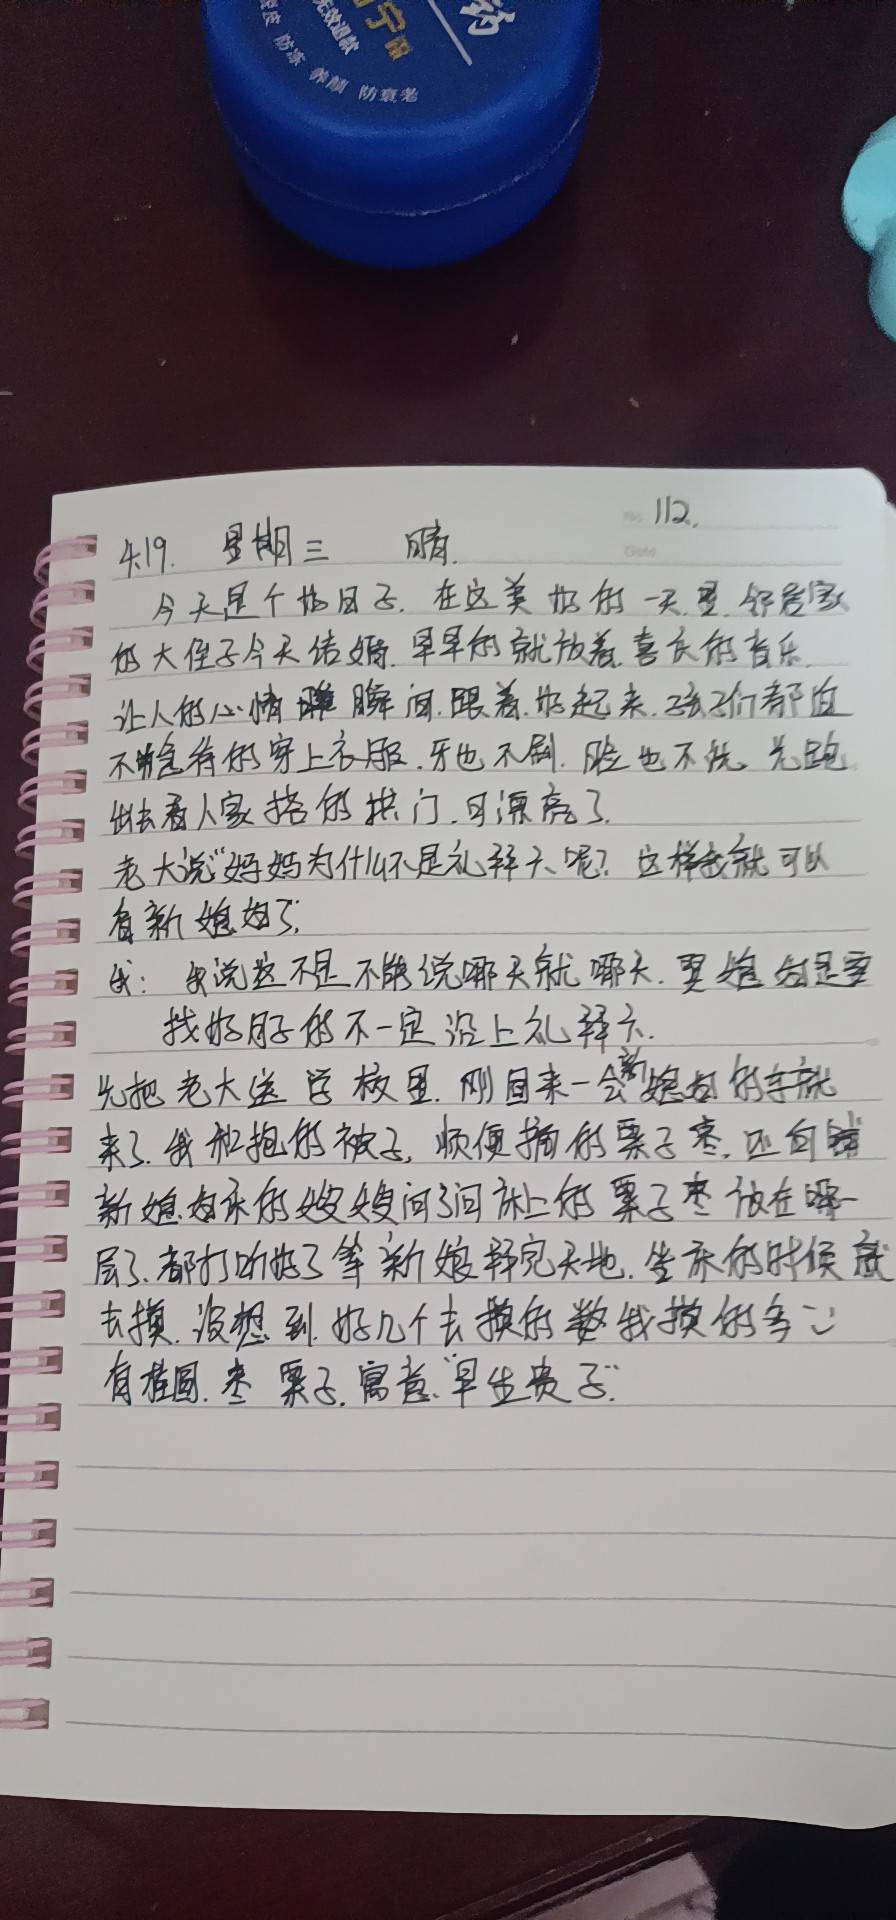 药
宁
无效退款
皮 防冻 养颜 防衰老
112.
4.19. 星期三 晴.
今天是个好日子. 在这美好的一天里. 邻居家
的大侄子今天结婚. 早早的就放着喜庆的音乐.
让人的心情瞬间.跟着.好起来.孩子们都迫
不急待的穿上衣服.牙也不刷.脸也不洗.先跑
出去看人家搭的拱门.可漂亮了.
老大说“妈妈为什么不是礼拜六呢?这样我就可以
看新媳妇了.
我: 我说这不是不能说哪天就哪天.娶媳妇是要
找好日子的不一定沿上礼拜六.
先把老大送学校里.刚回来一会新媳妇的车就
来了.我和抱的被子,顺便摘的栗子枣.还向
新媳妇家的嫂嫂问了问床上的栗子枣放在哪一
层了.都打听好了等新娘拜完天地.坐床的时候就
去摸.没想到.好几个去摸的数我摸的多
有桂圆.枣 栗子.寓意.“早生贵子”.